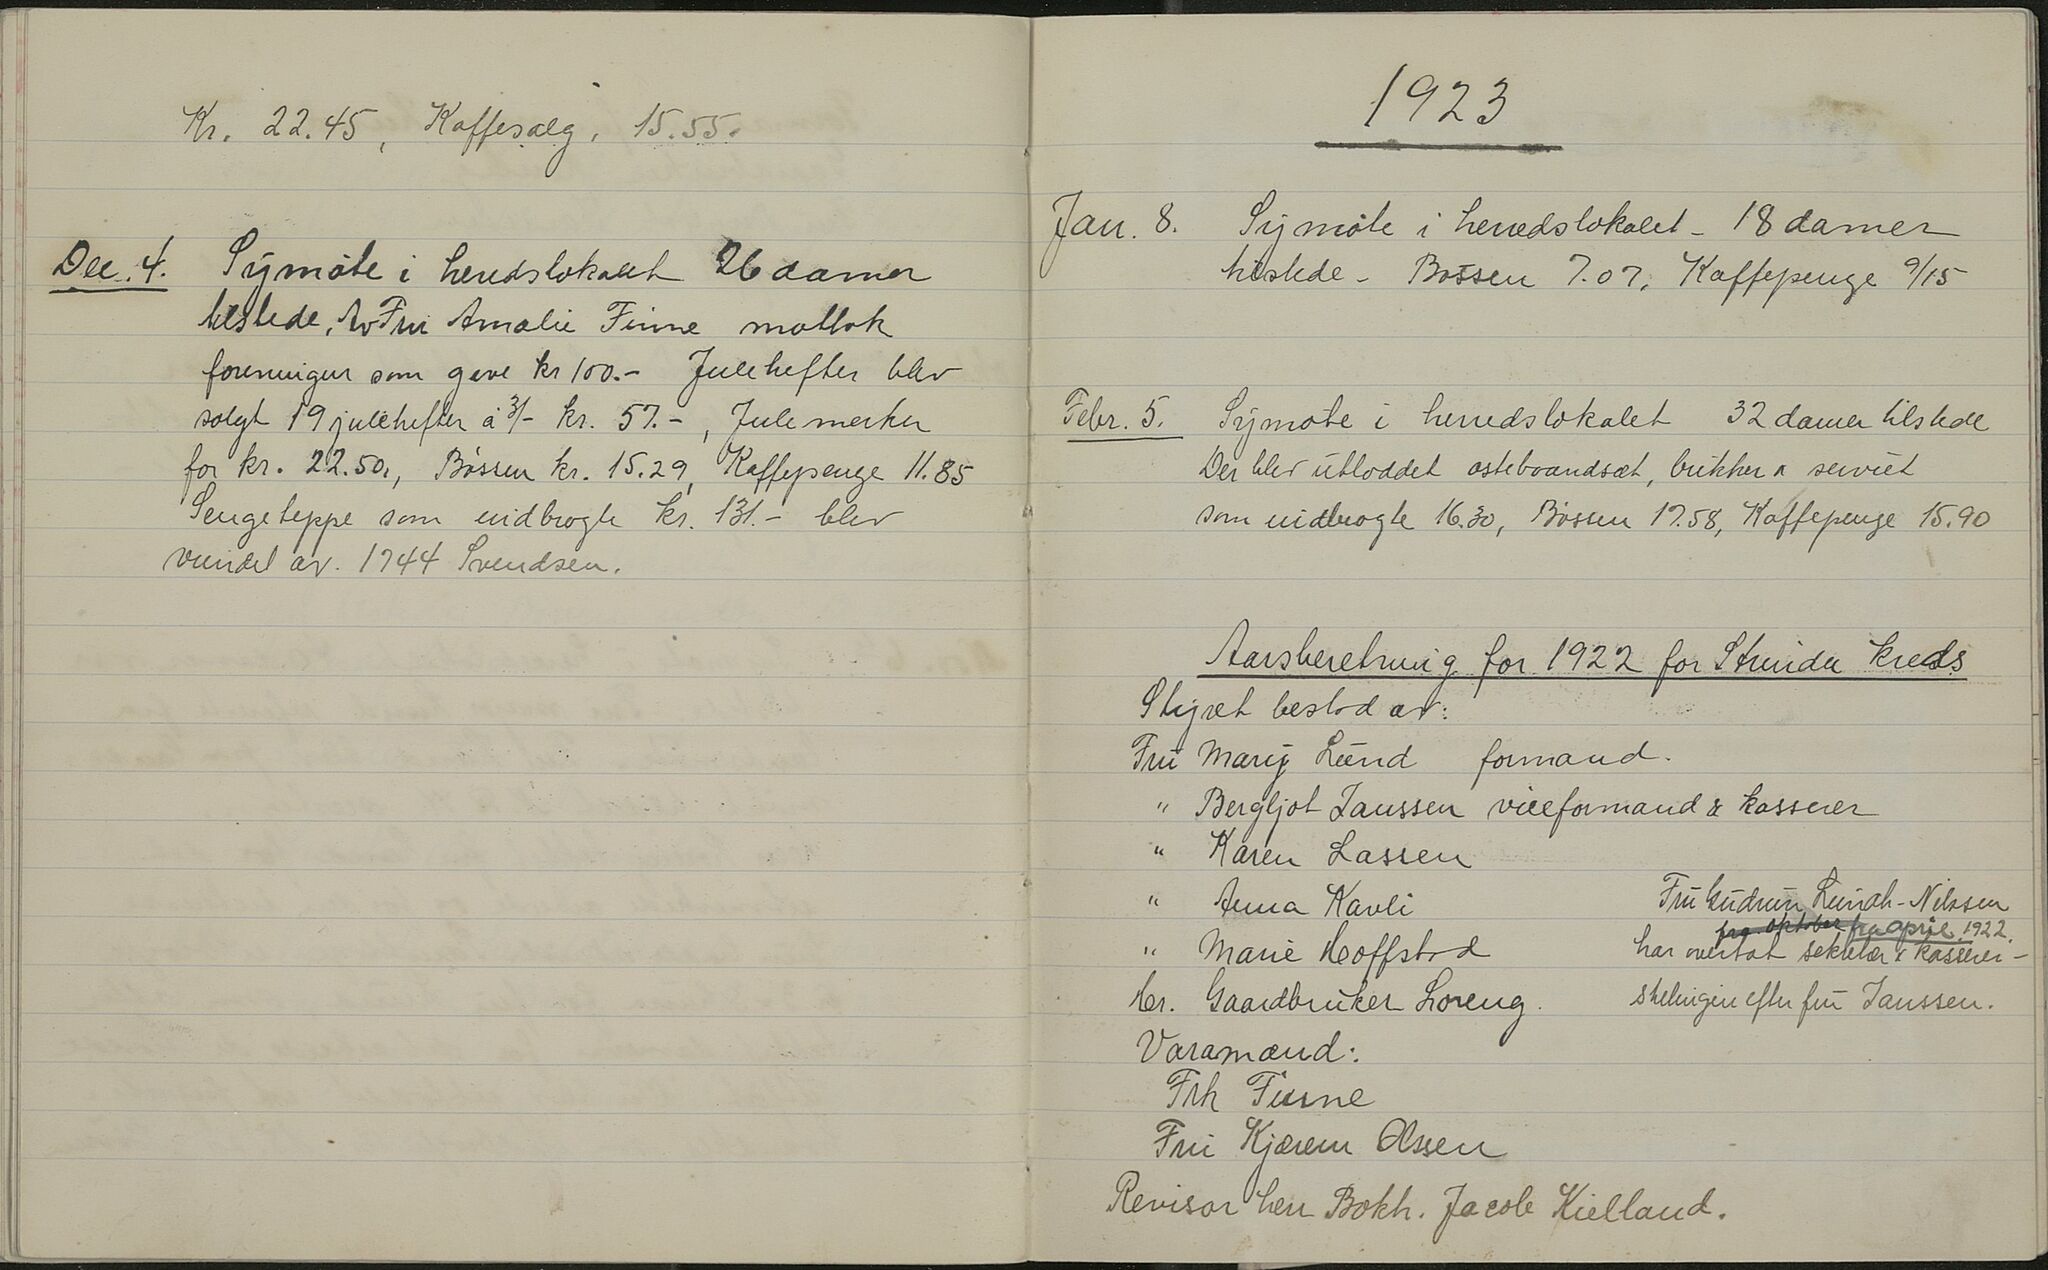 Kr. 22.45, Kaffesalg. 15.55.
Dec. 4. Symøte i herredslokalet 26 damer
tilstede. Av Fru Amalie Finne mottok
foreningen som gave kr 100.- Julehefter blev
solgt 19 julehefter à 3/- kr. 57.-, Julemerker
for kr. 22.50, Bøssen kr. 15.29, Kaffepenge 11.85
Sengeteppe som indbragte kr. 131.- blev
vundet av. 1744 Svendsen.
1923
Jan. 8. Symøte i herredslokalet - 18 damer
tilstede - Bøssen 7.07. Kaffepenge 9/15
Febr. 5. Symøte i herredslokalet 32 damer tilstede
Der blev utloddet ostebrandsæt, brikker & serviet
som indbragte 16.30, Bøssen 17.58, Kaffepenge 15.90
Aarsberetning for 1922 for Strinda kreds
Styret bestod av:
Fru Mary Lund formand.
" Bergljot Janssen viceformand & kasserer
" Karen Lassen
" Anna Kavli
" Marie Hoffstad
Hr. Gaardbruker Loreng.
Fru Gudrun Lunah-Nilssen
fra oktober fra april 1922.
har overtat sekretær & kasserer-
stillingen efter fru Janssen.
Varamænd:
Frk Finne
Fru Kjærem Olssen
Revisor herr Bokh. Jacob Kielland.